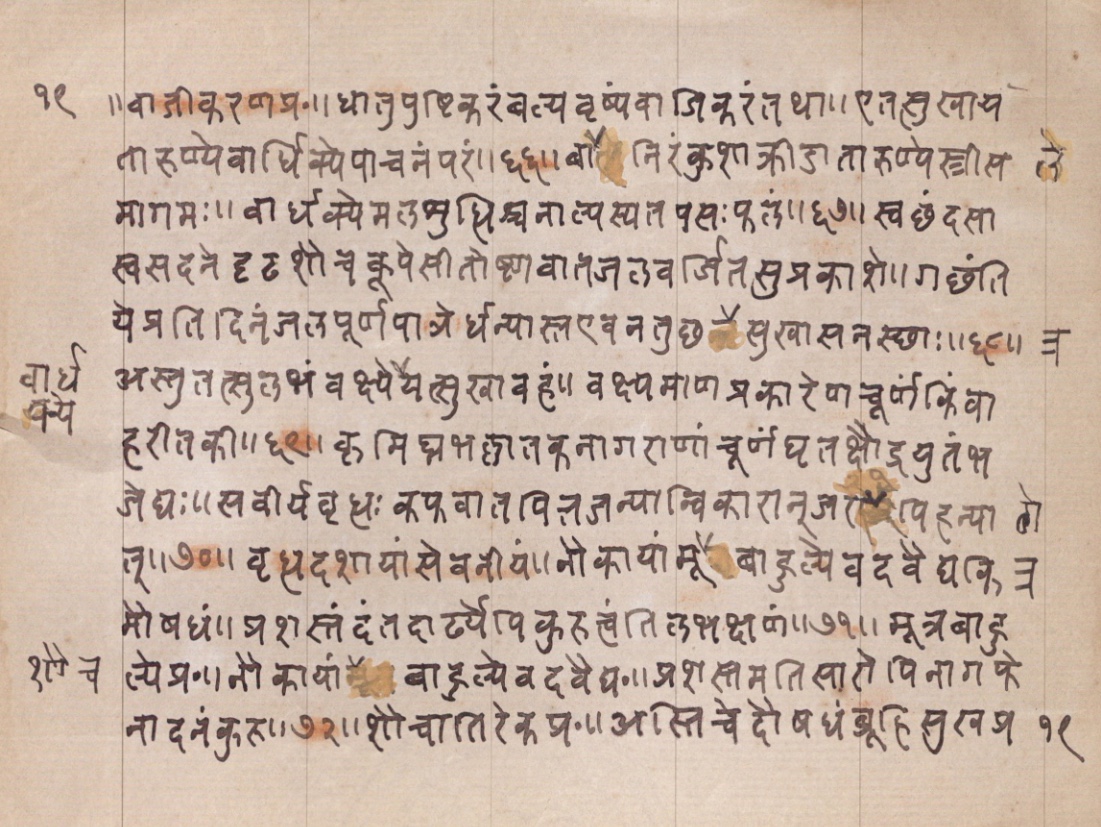 १९ ॥वाजीकरणप्र॰॥धातुपुष्टिकरंबल्यवृष्यंवाजिकरंतथा॥एतत्सुखाय
तारुण्येवार्धिक्येपाचनंपरं॥६६॥बा निरंकुशाक्रीडातारुण्येस्त्रीस ले
मागमः॥वार्धक्येमलमुध्धिश्चनाल्पस्यतपसःफलं॥६७॥स्वछंदसा
स्वसदनेदृढशौचकूपेसीतोष्णवातजलवर्जितसुप्रकाशे॥गछंति
येप्रतिदिनंजलपूर्णपात्रेर्धन्यास्तएवनतुछ सुखासनस्छाः॥६८॥ त्र
वार्ध
क्ये
अस्तुतत्सुलभंवक्ष्येयत्सुखावहं॥वक्ष्यमाणप्रकारेणचूर्णंकिंवा
हरीतकी॥६९॥कृमिघ्नभल्लातकनागराणांचूर्णंघृतक्षौद्रयुतंभ
जेद्यः॥सवीर्यवृध्धःकफवातपित्तजन्यान्विकारान्जरा पिहन्या तो
त्॥७०॥वृध्धदशायांसेवनीयं॥नौकायांमू बाहुल्येवदवैद्यकि त्र
मौषधं॥प्रशस्तंदंतदार्ढ्येपिकुरुत्वंतिलभक्षणं॥७१॥मूत्रबाहु
शौच ल्येप्र॰॥नौकायां बाहुल्येवदवैद्य॰॥प्रशस्तमतिसारोपिनागफे
नादनंकुरु॥७२॥शौचातिरेकप्र॰॥अस्तिचेदौषधंब्रूहिसुखप्र १९